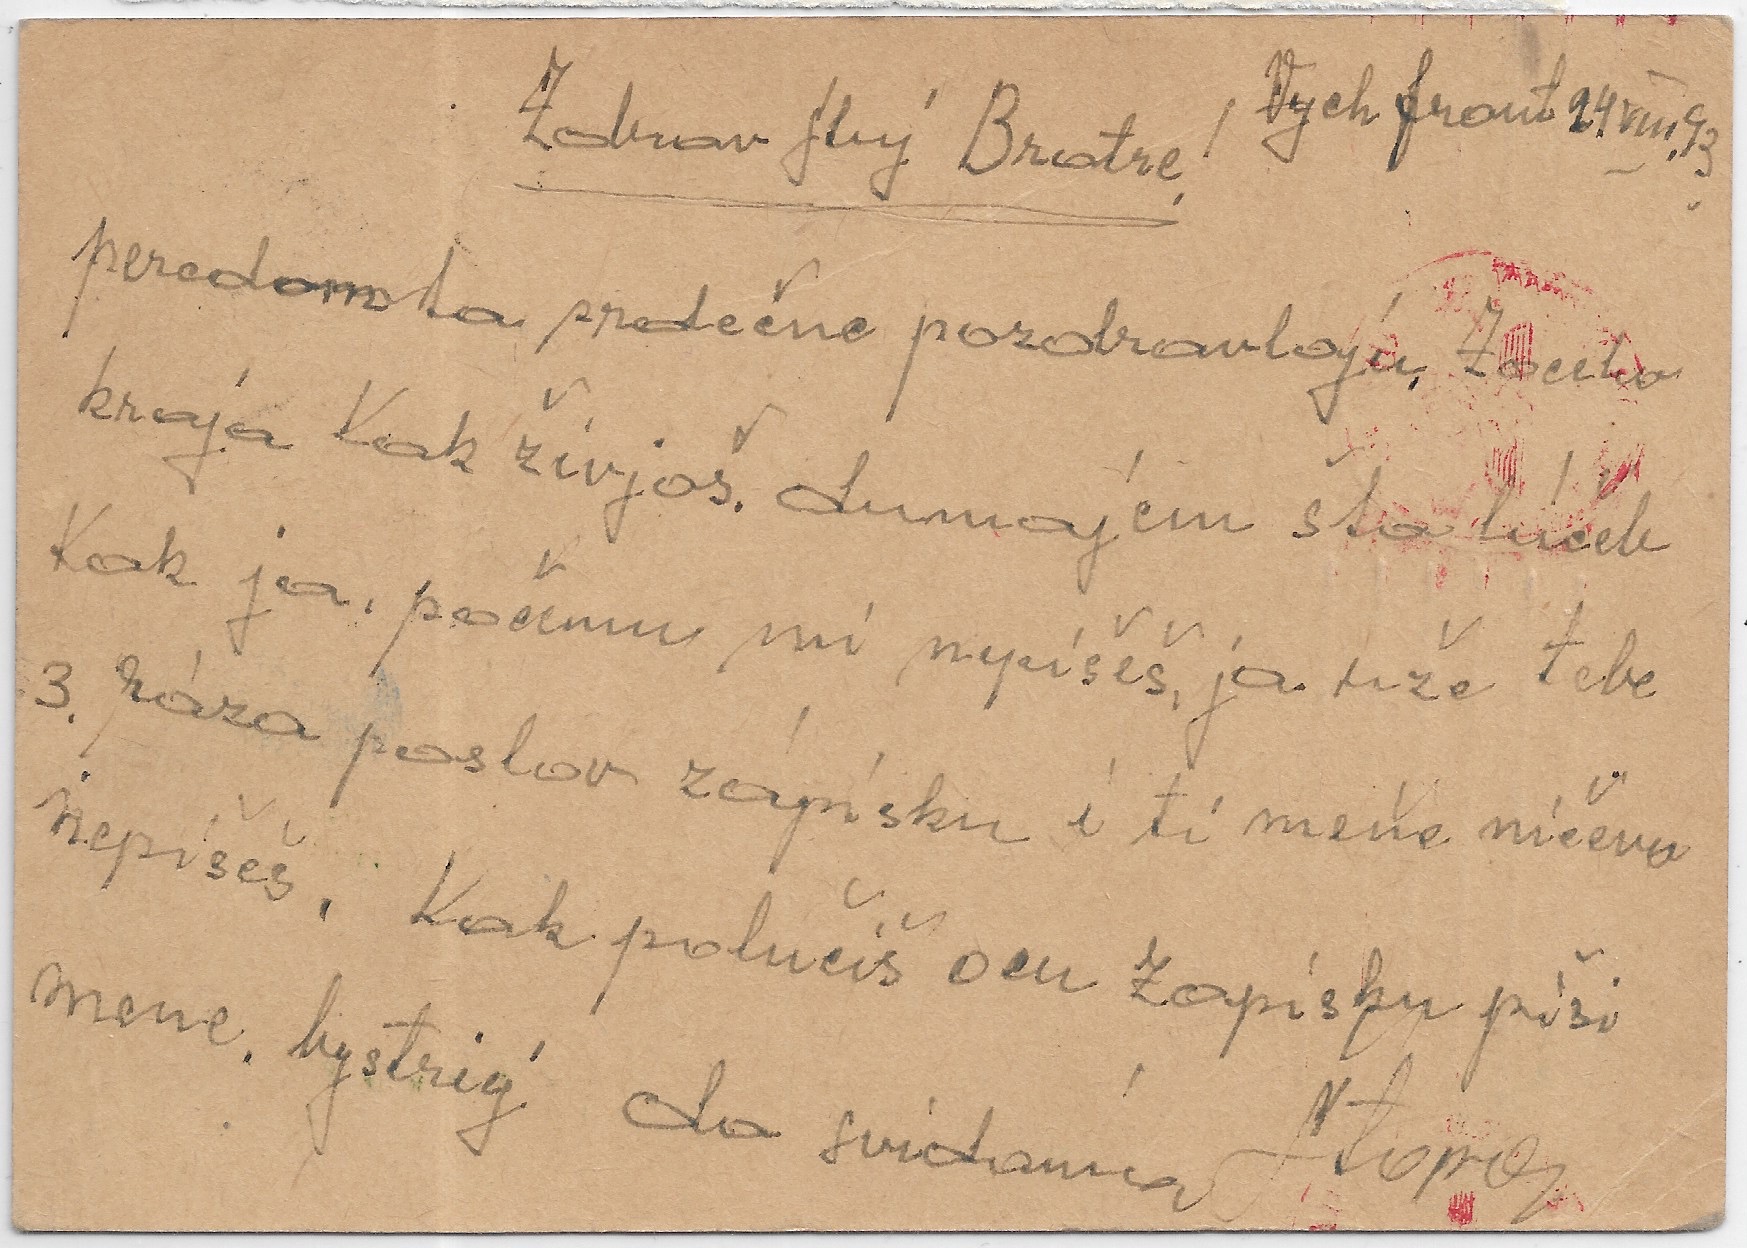 Zdrav Bratre! Vych front 24 VIII. 43
peredom ta srdečne pozdravlaju,
kraja Kak živjoš. dumajem što
Kak ja. počemu mi nypišeš, ja uže tebe
3. ráza poslav zápisku i ti meňe ničevo
Nepišeš. Kak polučiš ocu Zapisku piši
mene. bystrig do svidania